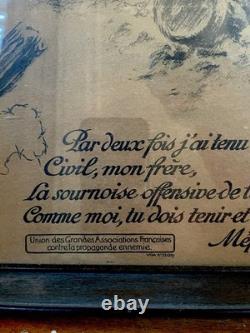 Par deux fois j'ai tenu
Civil, mon frère,
La sournoise offensive de l
Comme moi, tu dois tenir et
Mép
Union des Grandes Associations Françaises
contre la propagande ennemie.